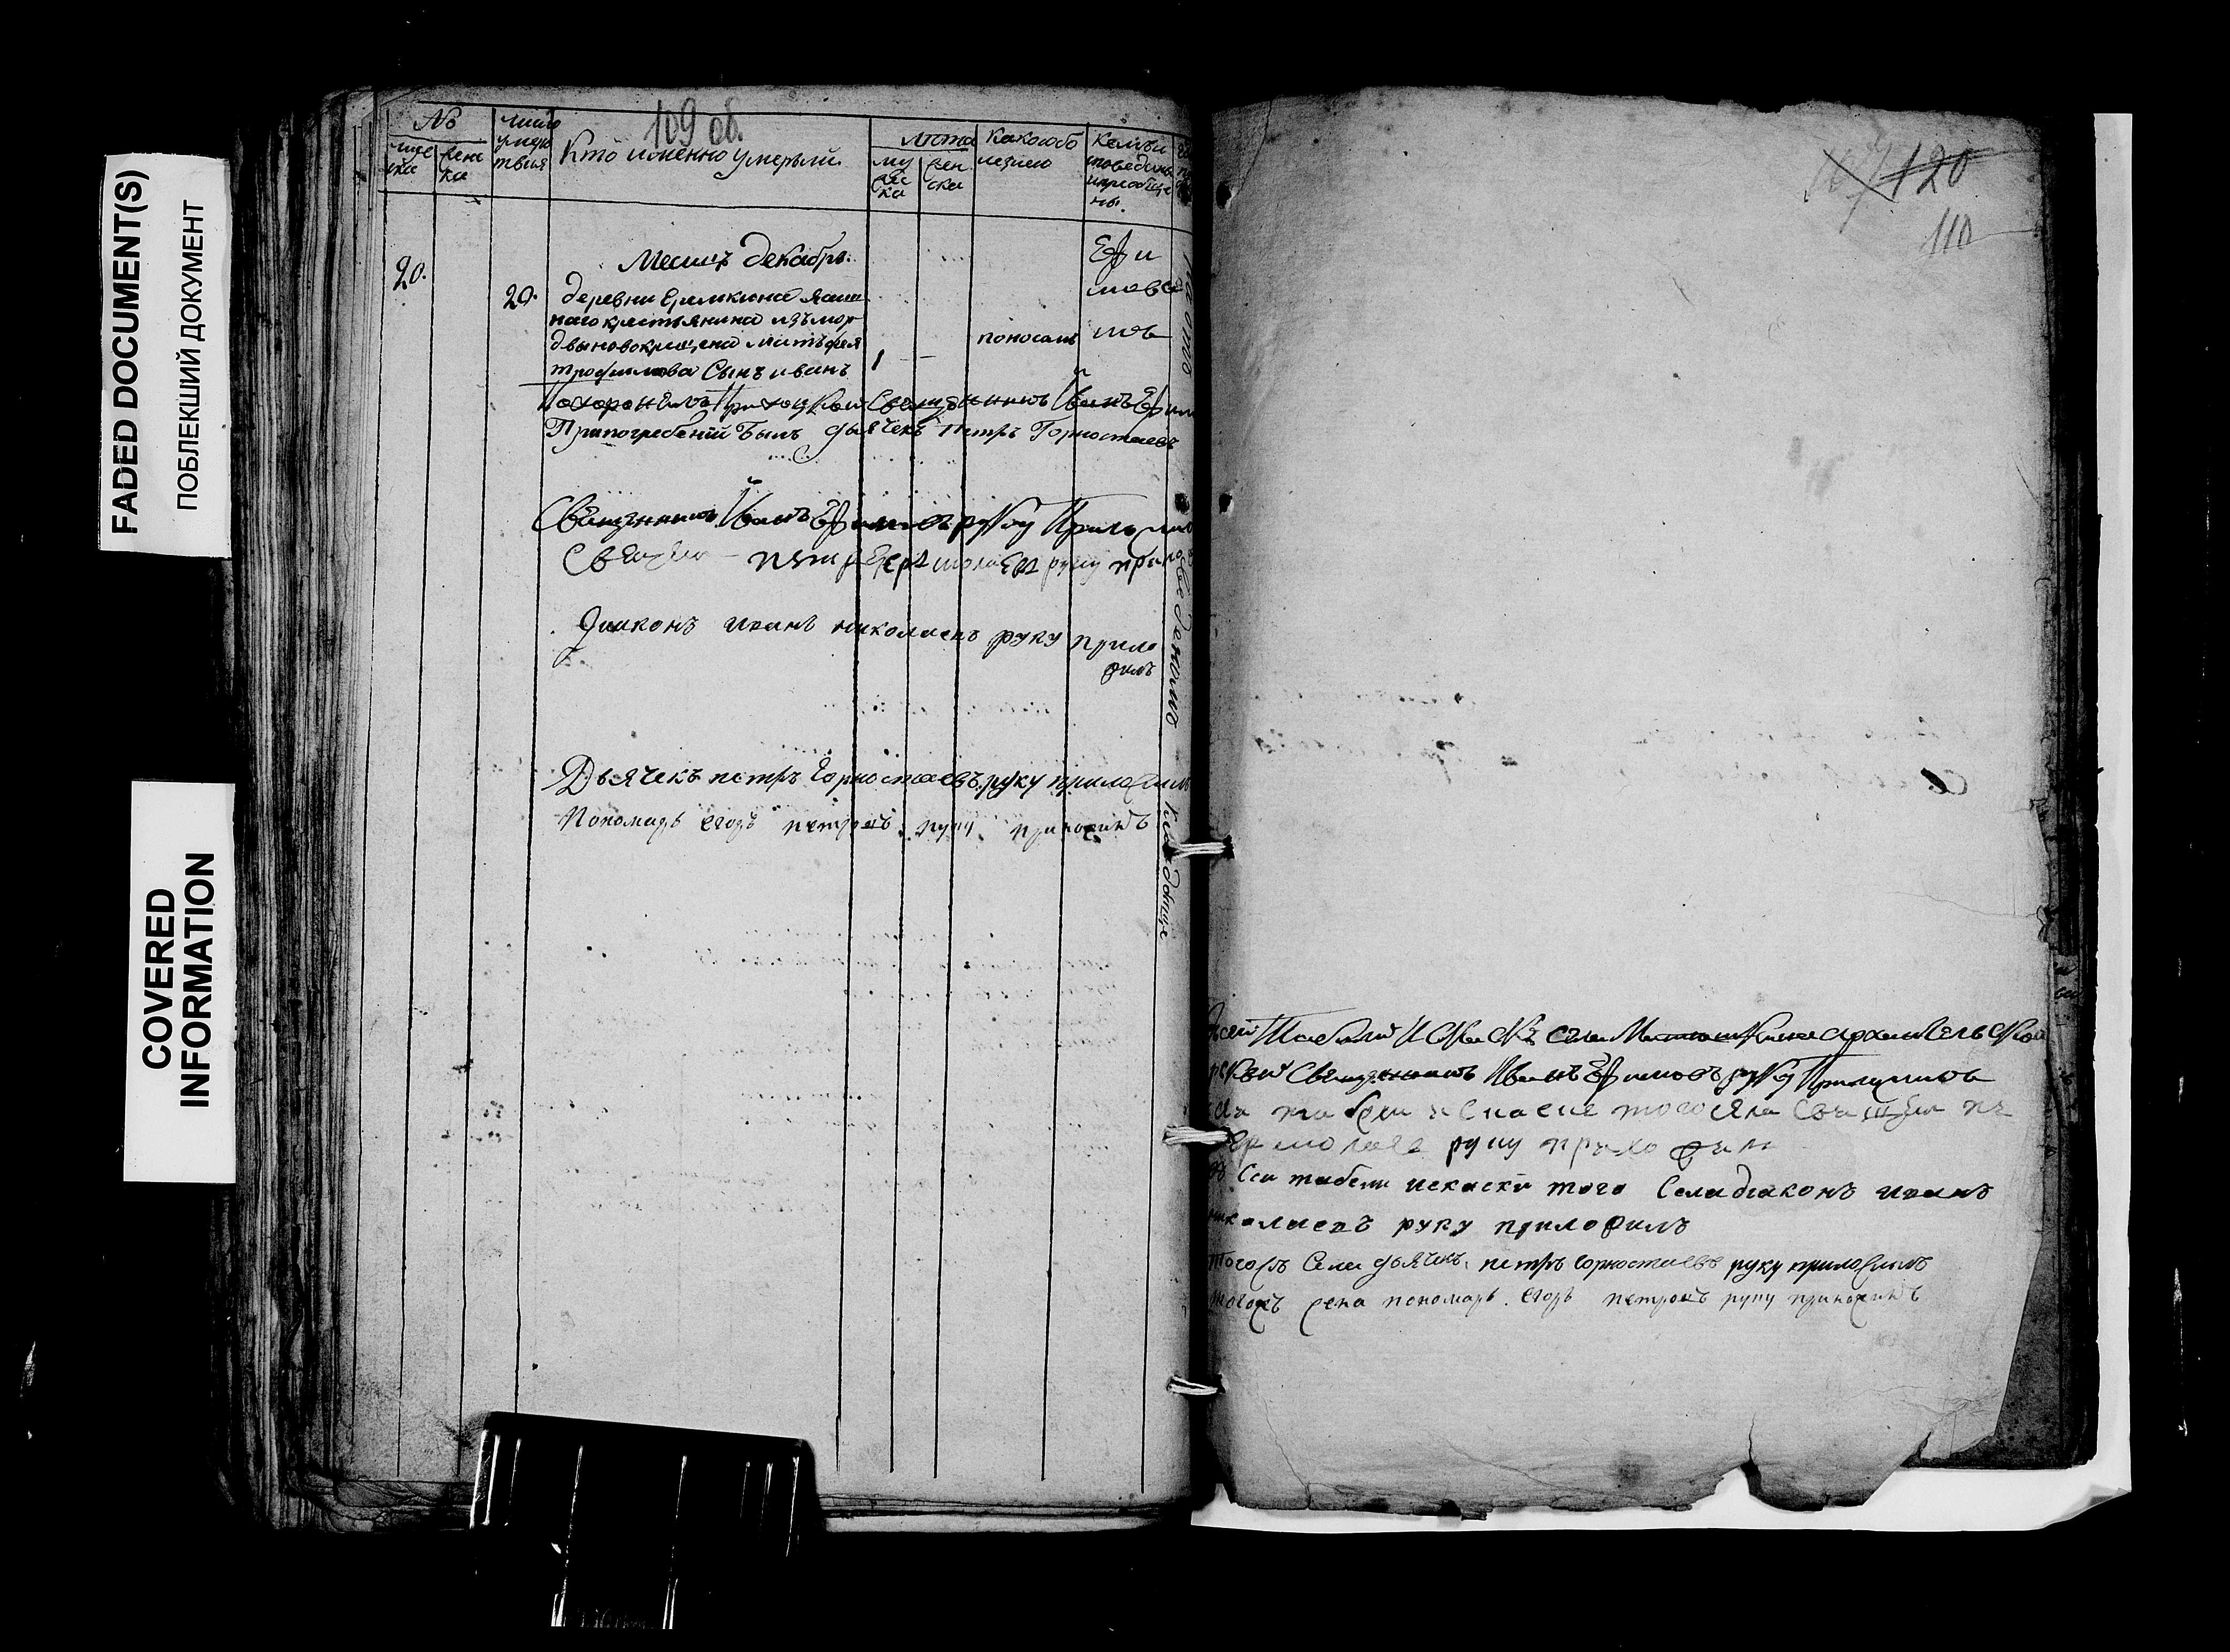 FADED DOCUMENT(S)
ПОБЛЕКШИЙ ДОКУМЕНТ
COVERED
INFORMATION
109 об.
№
число
умер
твия
Кто именно умерли
лета
му
жес
ка
жен
ска
Какою бо
лезнею
Кем и
споведаны
и приобще
ны
20.
Месяц декабрь.
20.
деревни
наго крестьянина из мор
двы новокрещена
трофимова Сынъ иванъ
1
поносомъ
Ефи
мовы
мъ
Похоронилъ Приходской Священникъ Иванъ Ефим
При погребении былъ дьячекъ петръ Горностаевъ
Священникъ Иванъ Ефимовъ руку Приложил
петр Ермолаев руку прило
Диаконъ иванъ николаевъ руку прило
жилъ
Дьячекъ петръ Горностаевъ руку приложилъ
Пономарь егоръ петровъ руку приложилъ
кладбище
120
110
Табели И Скаски села архангельской
Священникъ Иванъ Ефимовъ руку Приложилъ
табели и скаске того села
Ермолаев руку приложил
Сеи табели и скаски того Села диаконъ иванъ
николаевъ руку приложилъ
тогожъ Села дьячекъ петръ горностаевъ руку приложилъ
тогожъ села пономарь егоръ петровъ руку приложилъ